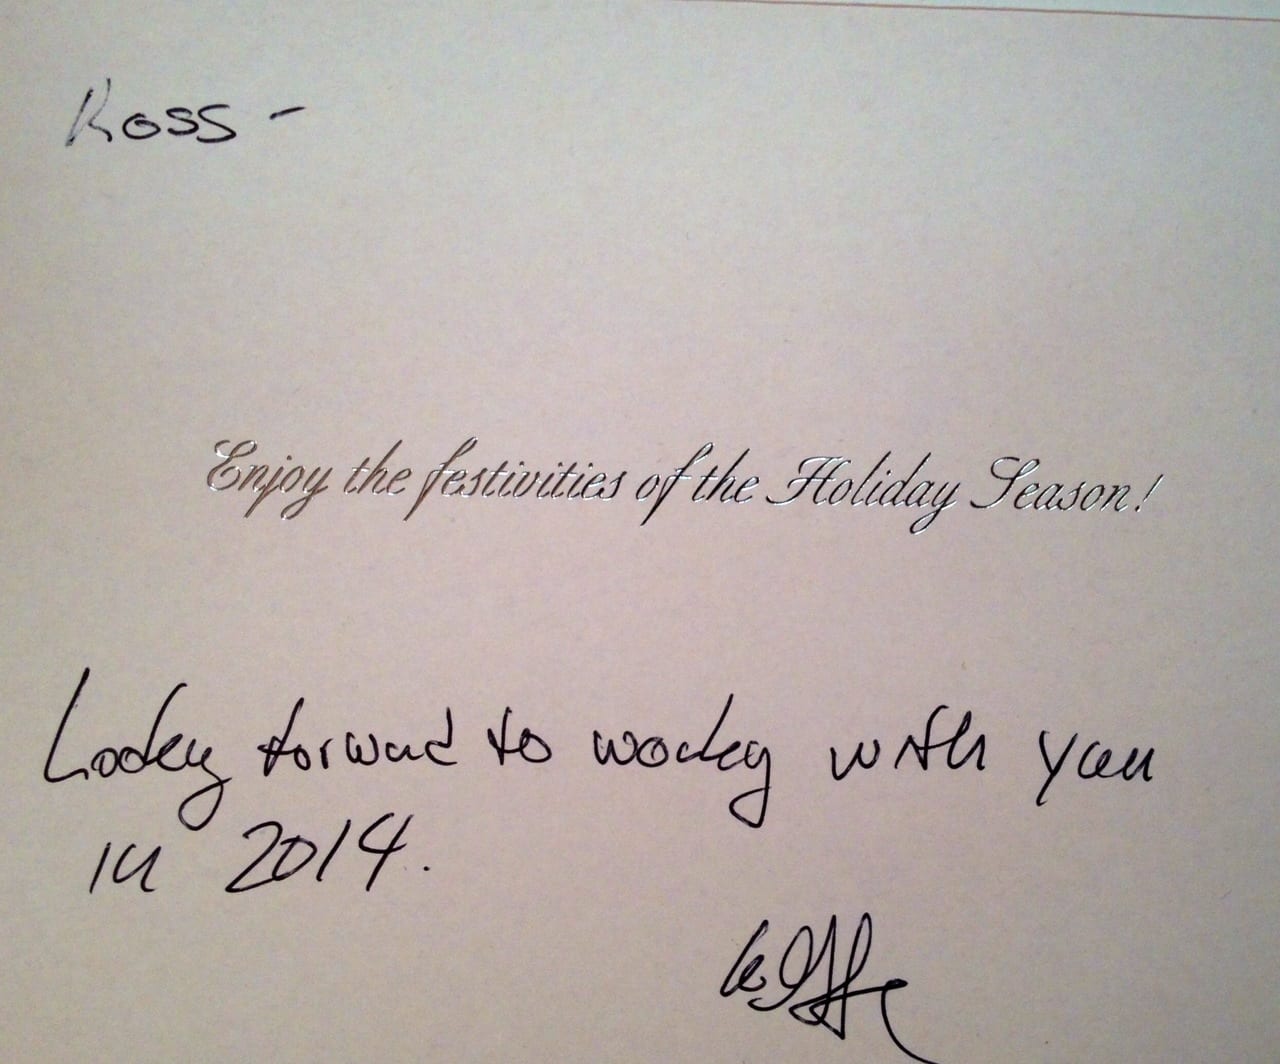 Ross -
Enjoy the festivities of the Holiday Season!
Looking forward to working with you
in 2014.